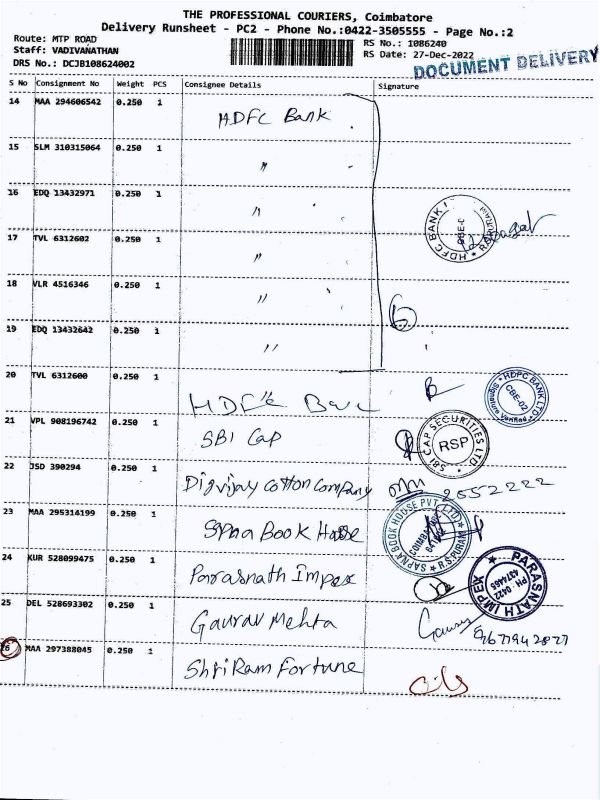 THE PROFESSIONAL COURIERS, Coimbatore
Delivery Runsheet - PC2 - Phone No.:0422-3505555 - Page No.:2
Route: MTP ROAD
Staff: VADIVANATHAN
DRS No.: DCJB108624002
RS No.: 1086240
RS Date: 27-Dec-2022
DOCUMENT DELIVERY
S No Consignment No Weight PCS Consignee Details Signature
14 MAA 294606542 0.250 1 HDFC Bank
15 SLM 310315064 0.250 1 "
16 EDQ 13432971 0.250 1 "
HDFC BANK
17 TVL 6312602 0.250 1 "
18 VLR 4516346 0.250 1 "
6
19 EDQ 13432642 0.250 1 "
20 TVL 6312600 0.250 1 HDFC Bank
HDFC BANK LTD. CBE-02 Signature Verified
21 VPL 908196742 0.250 1 SBI Cap
SBI CAP SECURITIES LTD. RSP
22 JSD 390294 0.250 1 Digvijay Cotton Company
2552222
23 MAA 295314199 0.250 1 Sapna Book House
SAPNA BOOK HOUSE PVT LTD COIMBATORE R.S.PURAM
24 KUR 528099475 0.250 1 Parasnath Impex
PARASNATH IMPEX PH : 0422 4374465
25 DEL 528693302 0.250 1 Gaurav Mehta
Gaurav
26 MAA 297388045 0.250 1 ShriRam Fortune